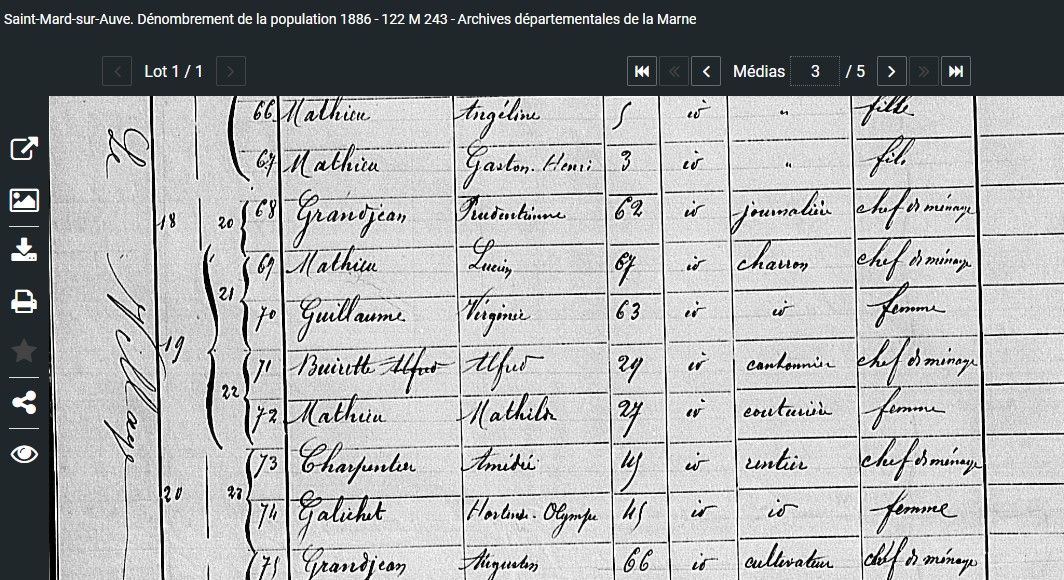 Saint-Mard-sur-Auve. Dénombrement de la population 1886 - 122 M 243 - Archives départementales de la Marne
Lot 1 / 1 Médias 3 / 5
Le Village
66 Mathieu Angéline 5 id " fille
67 Mathieu Gaston. Henri 3 id " fils
18 20 68 Grandjean Prudentienne 62 id journalière chef de ménage
21 69 Mathieu Lucien 67 id charron chef de ménage
70 Guillaume Virginie 63 id id femme
19 22 71 Buirette Alfred Alfred 29 id cantonnier chef de ménage
72 Mathieu Mathilde 27 id couturière femme
20 23 73 Charpentier Amédée 45 id rentier chef de ménage
74 Galichet Hortense. Olympe 45 id id femme
75 Grandjean Augustin 66 id cultivateur chef de ménage